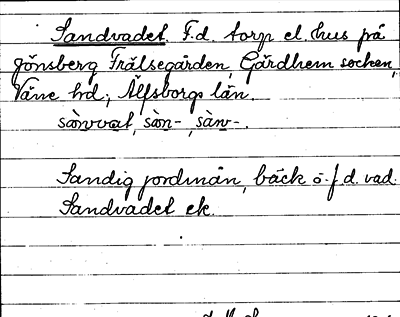 Sandvadet. F.d. torp el. hus på
Jönsberg Frälsegården, Gärdhem socken,
Väne hrd; Älfsborgs län.
sànvvat, sàn-, sàn-.
Sandig jordmån, bäck o. f.d. vad.
Sandvadet ek.